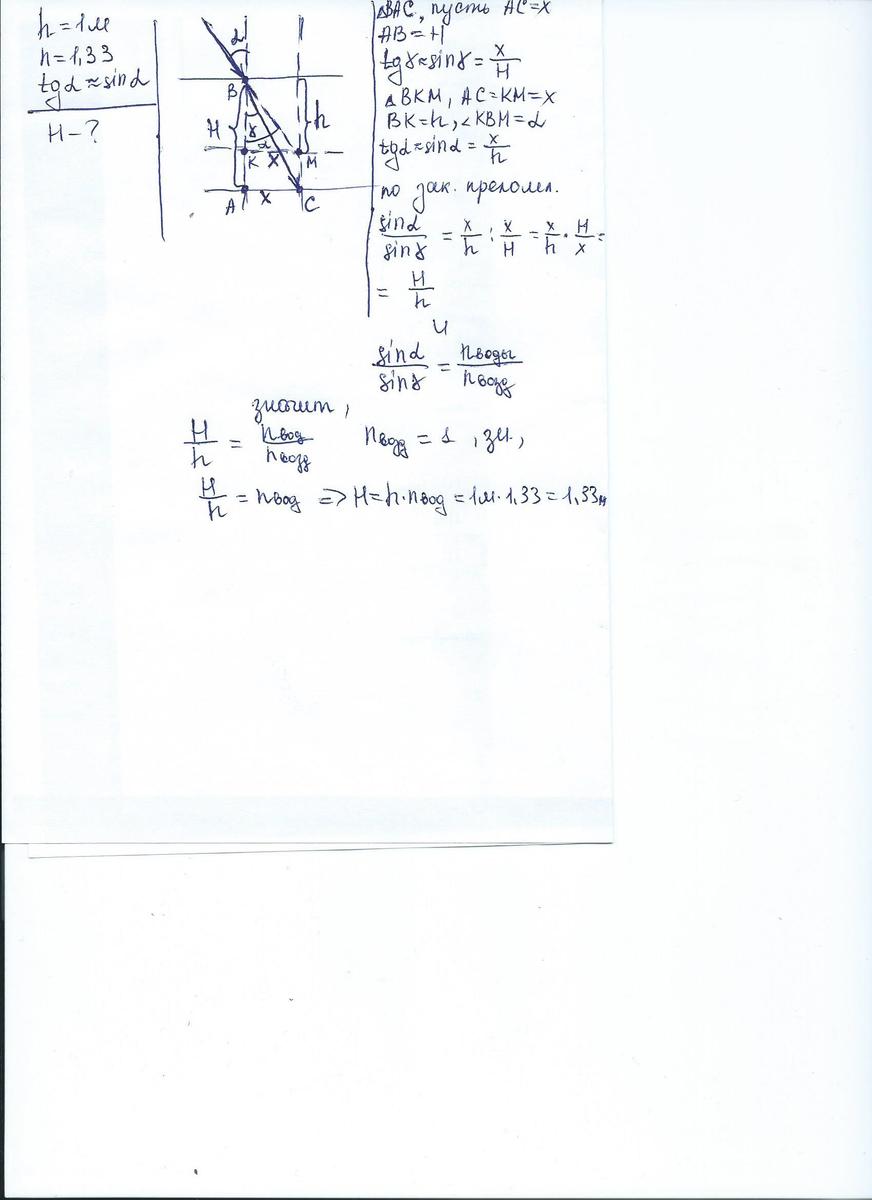 h = 1 м
n = 1,33
tg α ≈ sin α
H - ?
α
B
H
γ
α
h
K
x
M
A
x
C
△BAC, пусть AC = x
AB = H
tg γ ≈ sin γ = x/H
△BKM, AC = KM = x
BK = h, ∠KBM = α
tg α ≈ sin α = x/h
по зак. преломл.
sin α / sin γ = x/h : x/H = x/h · H/x =
= H/h
и
sin α / sin γ = n воды / n возд
значит,
H/h = n вод / n возд   n возд = 1, зн.,
H/h = n вод => H = h · n вод = 1 м · 1,33 = 1,33 м